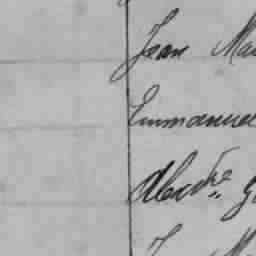 Jean Ma
Emmanuel
Alexdre G
J M